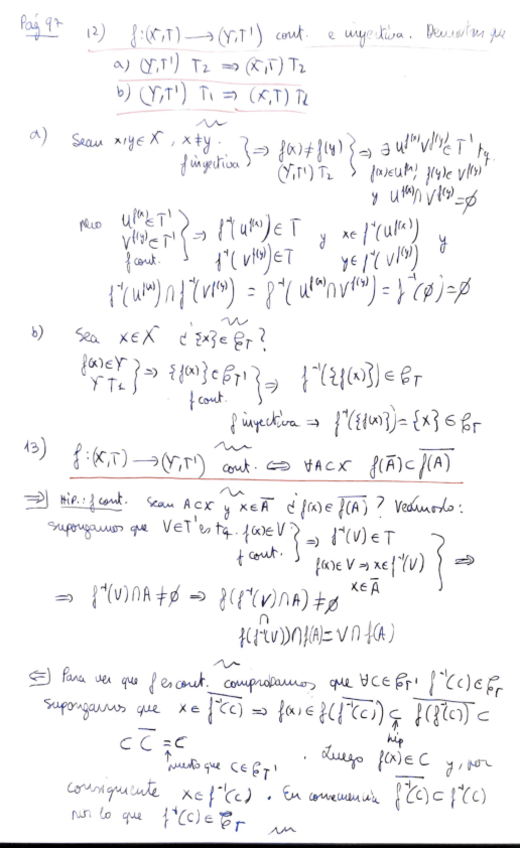 Pág 97
12) f:(X,T) → (Y,T') cont. e inyectiva. Demostrar que
a) (Y,T') T₂ ⇒ (X,T) T₂
b) (Y,T') T₁ ⇒ (X,T) T₁
a) Sean x,y∈X, x≠y. f inyectiva } ⇒ f(x)≠f(y) (Y,T') T₂ } ⇒ ∃ U^{f(x)}, V^{f(y)} ∈ T' tq.
f(x)∈U^{f(x)}, f(y)∈V^{f(y)}
y U^{f(x)}∩V^{f(y)}=∅
pero U^{f(x)}∈T' V^{f(y)}∈T' f cont. } ⇒ f⁻¹(U^{f(x)})∈T f⁻¹(V^{f(y)})∈T y x∈f⁻¹(U^{f(x)}) y∈f⁻¹(V^{f(y)}) y
f⁻¹(U^{f(x)})∩f⁻¹(V^{f(y)}) = f⁻¹(U^{f(x)}∩V^{f(y)}) = f⁻¹(∅)=∅
b) Sea x∈X ¿{x}∈C_T?
f(x)∈Y Y T₁ } ⇒ {f(x)}∈C_T' f cont. } ⇒ f⁻¹({f(x)})∈C_T
f inyectiva ⇒ f⁻¹({f(x)})={x}∈C_T
13) f:(X,T) → (Y,T') cont. ⇔ ∀A⊂X f(A̅)⊂\overline{f(A)}
⇒] Hip.: f cont. Sean A⊂X y x∈A̅ ¿f(x)∈\overline{f(A)}? Veámoslo:
supongamos que V∈T' es tq. f(x)∈V f cont. } ⇒ f⁻¹(V)∈T
f(x)∈V ⇒ x∈f⁻¹(V) x∈A̅ } ⇒
⇒ f⁻¹(V)∩A≠∅ ⇒ f(f⁻¹(V)∩A)≠∅
∩
f(f⁻¹(V))∩f(A)=V∩f(A)
⇐] Para ver que f es cont. comprobamos que ∀C∈C_T' f⁻¹(C)∈C_T
Supongamos que x∈\overline{f⁻¹(C)} ⇒ f(x)∈f(\overline{f⁻¹(C)}) ⊂ \overline{f(f⁻¹(C))} ⊂
↑
hip
⊂ C̅ = C
↑ puesto que C∈C_T' . Luego f(x)∈C y, por
consiguiente x∈f⁻¹(C). En consecuencia \overline{f⁻¹(C)}⊂f⁻¹(C)
por lo que f⁻¹(C)∈C_T